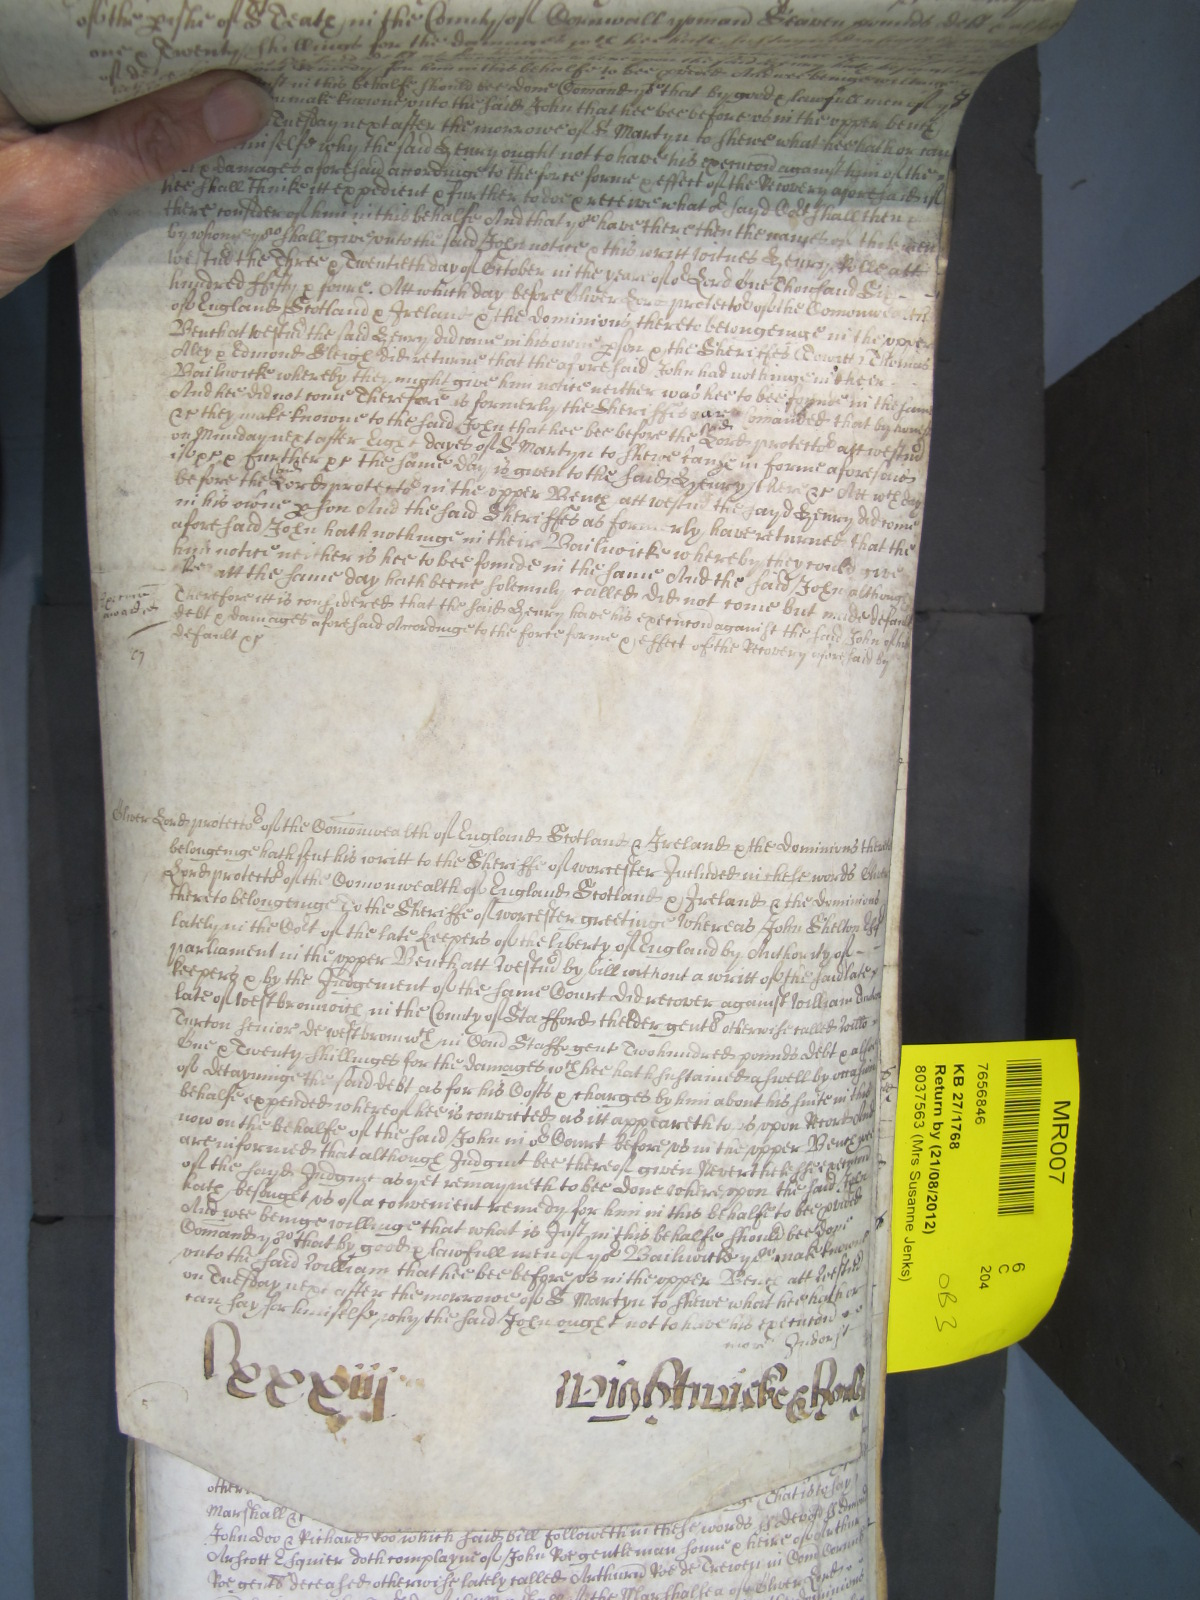 of the pishe of St Teath in the County of Cornwall yoman Seaven pounds debt
one & Twenty shillings for the damages
in this behalfe should bee done Comand yow that by good & lawfull men of yor
make knowne unto the said John that hee bee before us in the upper bench
Tuesday next after the morrowe of St Martyn to shewe what hee hath or can
himselfe why the said Henry ought not to have his execucon against him of the
& damages aforesaid accordinge to the force forme & effect of the Recovery aforesaid if
hee shall thinke itt expedient & further to doe & receive what or sayd Cort shall then
there consider of him in this behalfe And that yow have there then the names of those
by whome yow shall give unto the said John notice & this writt witnes Henry Rolle att
Westmr the Three & Twentieth day of October in the yeare of or Lord One Thousand Six
hundred fifty & foure. Att which day before Oliver Lord protector of the Comonwealth
of England Scotland & Ireland & the dominions thereto belongeinge in the upper
Bench at Westmr the said Henry did come in his owne pson & the Sheriffes Thomas
Aley & Edmond Sleigh did returne that the aforesaid John had nothinge in their
Bailiwicke whereby they might give him notice neither was hee to bee founde in the same
And hee did not come Therefore as formerly the Sheriffes are Comanded that by honest
&c they make knowne to the said John that hee bee before the said Lord protector att Westmr
on Munday next after Eight dayes of St Martyn to shewe cause in forme aforesaid
if &c & further &c the same day is given to the said Henry there &c Att wch day
before the said Lord protector in the upper Bench att Westmr the sayd Henry did come
in his owne pson And the said Sheriffes as formerly have returned that the
aforesaid John hath nothinge in their Bailiwicke whereby they could give
him notice neither is hee to bee founde in the same And the said John although
hee att the same day hath beene solemnly called did not come but made default
Therefore itt is considered that the said Henry have his execucon against the said John of his
debt & damages aforesaid accordinge to the force forme & effect of the Recovery aforesaid by
default &c
Oliver Lord protector of the Comonwealth of England Scotland & Ireland & the dominions thereto
belongeinge hath sent his writt to the Sheriffe of Worcester Included in these words Oliver
Lord protector of the Comonwealth of England Scotland & Ireland & the dominions
thereto belongeinge To the Sheriffe of Worcester greetinge Whereas John Shelton Esqr
lately in the Cort of the late keepers of the liberty of England by Authority of
parliament in the upper Bench att Westmr by bill without a writt of the said late
keepers & by the Judgement of the same Court did recover against William Turton
late of Westbromwich in the County of Stafford thelder gent otherwise called Willm
Turton senior de Westbromwch in Com Staff gent Two hundred pounds debt & also
One & Twenty shillinges for the damages wch hee hath sustained aswell by occasion
of detayninge the said debt as for his Costs & charges by him about his suite in this
behalfe expended whereof hee is convicted as itt appeareth to us upon Record And
now on the behalfe of the said John in or Court before us in the upper Bench wee
are informed that although Judgmt bee thereof given Neverthelesse execucon
of the sayd Judgmt as yet remayneth to bee done whereupon the said John
hath besought us of a convenient remedy for him in this behalfe to bee provided
And wee beinge willinge that what is Just in this behalfe should bee done
Comand yow that by good & lawfull men of yor Bailiwicke yow make knowne
unto the said William that hee bee before us in the upper Bench att Westmr
on Tuesday next after the morrowe of St Martyn to shewe what hee hath or
can say for himselfe why the said John ought not to have his execucon
more
lxxxiij Wightwicke &
Marshall &c
John doo & Richard Roo which said bill followeth in these words
Arscott Esquier doth complayne of John Roe gentleman sonne & heire of Arthur
Roe gent deceased otherwise lately called Arthurn Roe de Trewen in Com Cornub
the Marshalsea of Oliver Lord
MR007
7656846
6
C
204
KB 27/1768
Return by (21/08/2012)
8037563 (Mrs Susanne Jenks)
OB 3